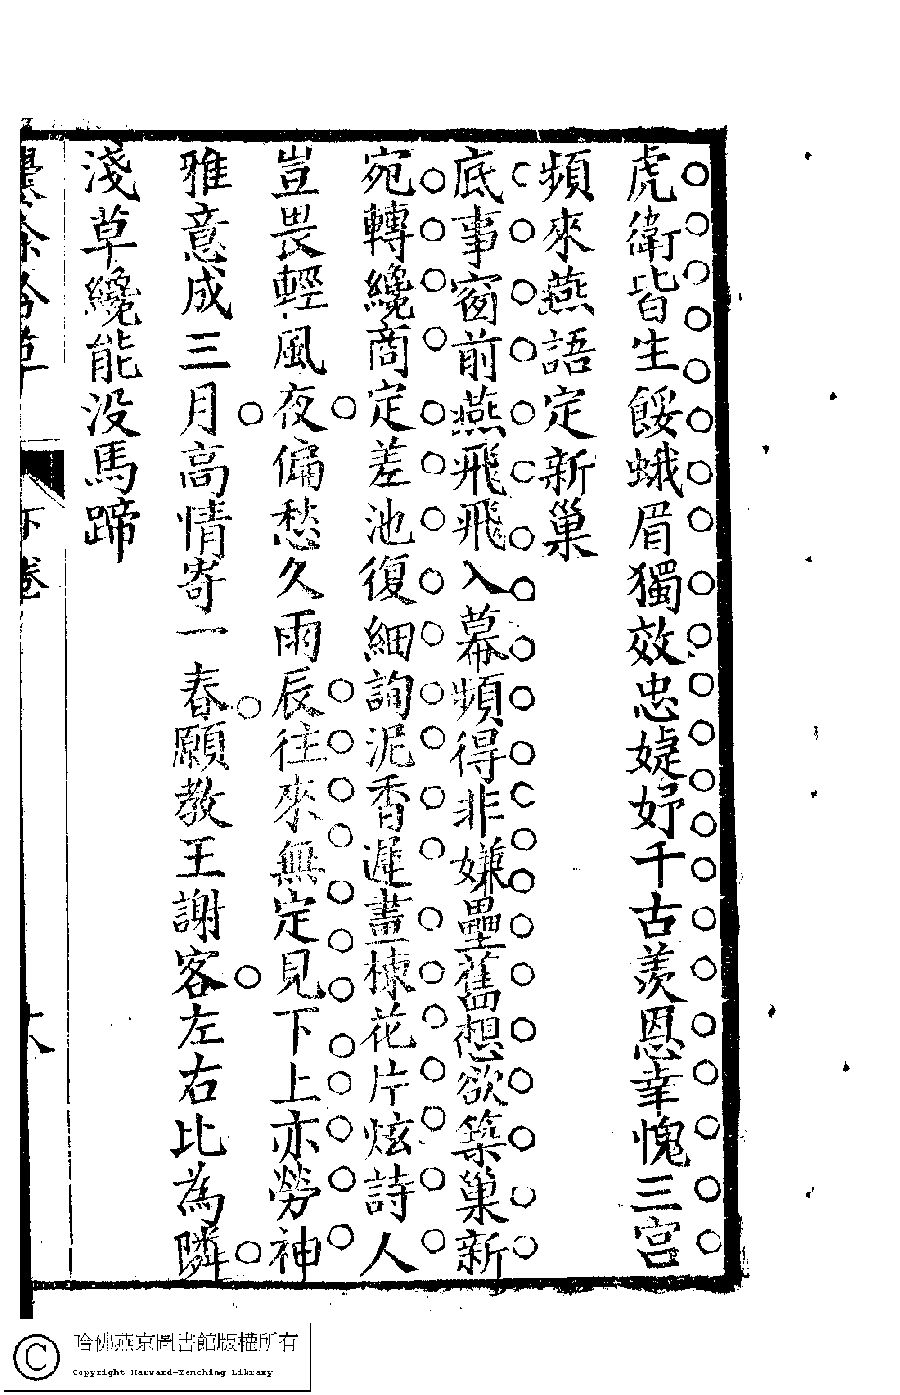 虎衛皆生餒蛾眉獨效忠婕妤千古羨恩幸愧三宮
頻來燕語定新巢
底事窗前燕飛飛入幕頻得非嫌壘舊想欲築巢新
宛轉纔商定差池復細詢泥香遲畫棟花片炫詩人
豈畏輕風夜偏愁久雨辰往來無定見下上亦勞神
雅意成三月高情寄一春願教王謝客左右比為隣
淺草纔能没馬蹄
下卷
哈佛燕京圖書館版權所有
Copyright Harvard-Yenching Library